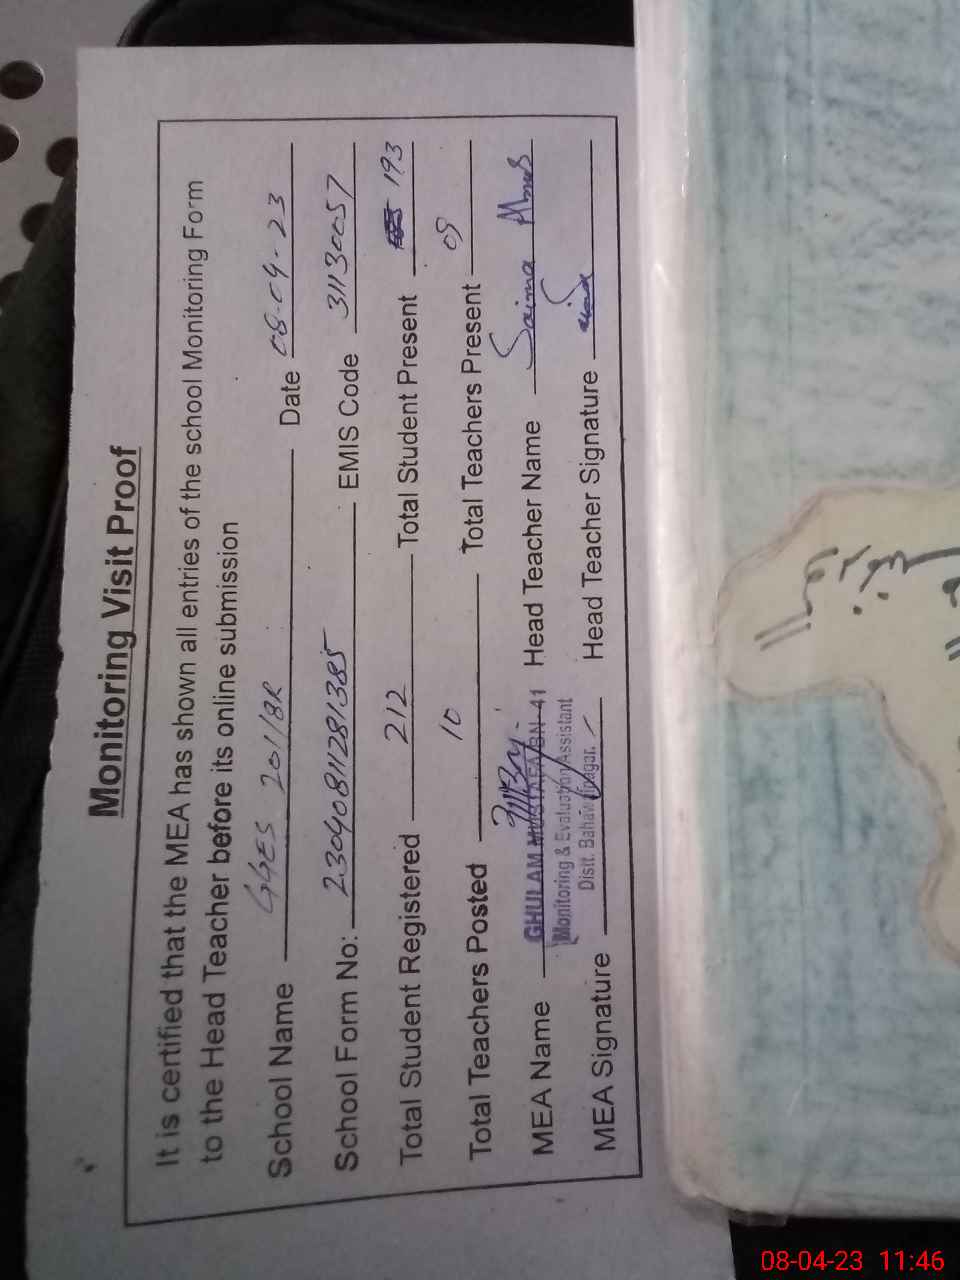 Monitoring Visit Proof
It is certified that the MEA has shown all entries of the school Monitoring Form
to the Head Teacher before its online submission
School Name GGES 201/8R Date 08-04-23
School Form No: 23040811281385 EMIS Code 31130057
Total Student Registered 212 Total Student Present 193
Total Teachers Posted 10 Total Teachers Present 09
MEA Name GHULAM MUSTAFA BN-41 Head Teacher Name Saima
Monitoring & Evaluation Assistant
Distt. Bahawalnagar.
MEA Signature Head Teacher Signature
08-04-23 11:46